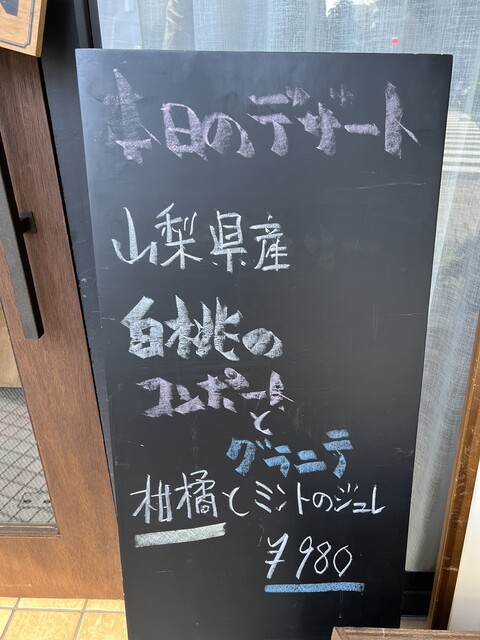 本日のデザート
山梨県産
白桃の
コンポート
と
グラニテ
柑橘とミントのジュレ
¥980